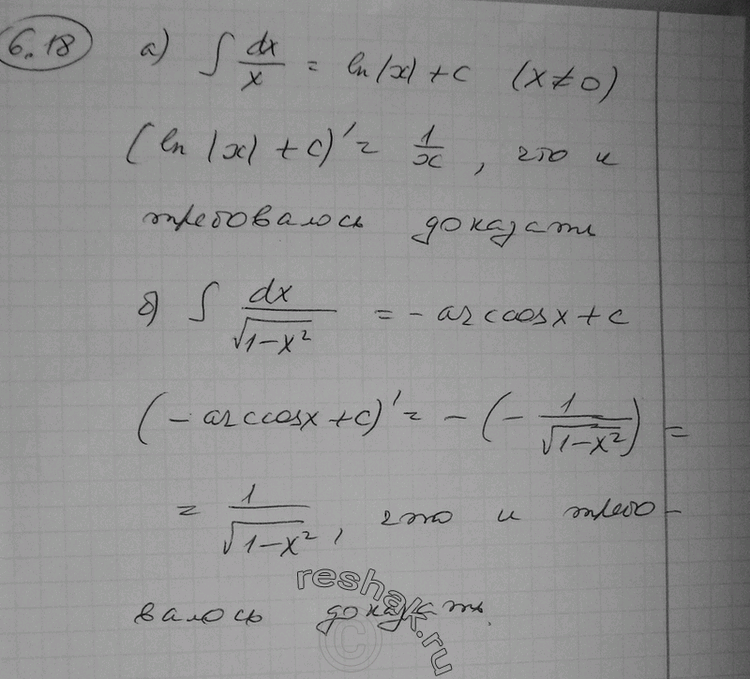 6.18 а) ∫ dx/x = ln|x| + c (x ≠ 0)
(ln|x| + c)' = 1/x, что и
требовалось доказать
б) ∫ dx/√(1-x²) = - arccosx + c
(- arccosx + c)' = - (- 1/√(1-x²)) =
= 1/√(1-x²), что и требо-
валось доказать.
reshak.ru
©